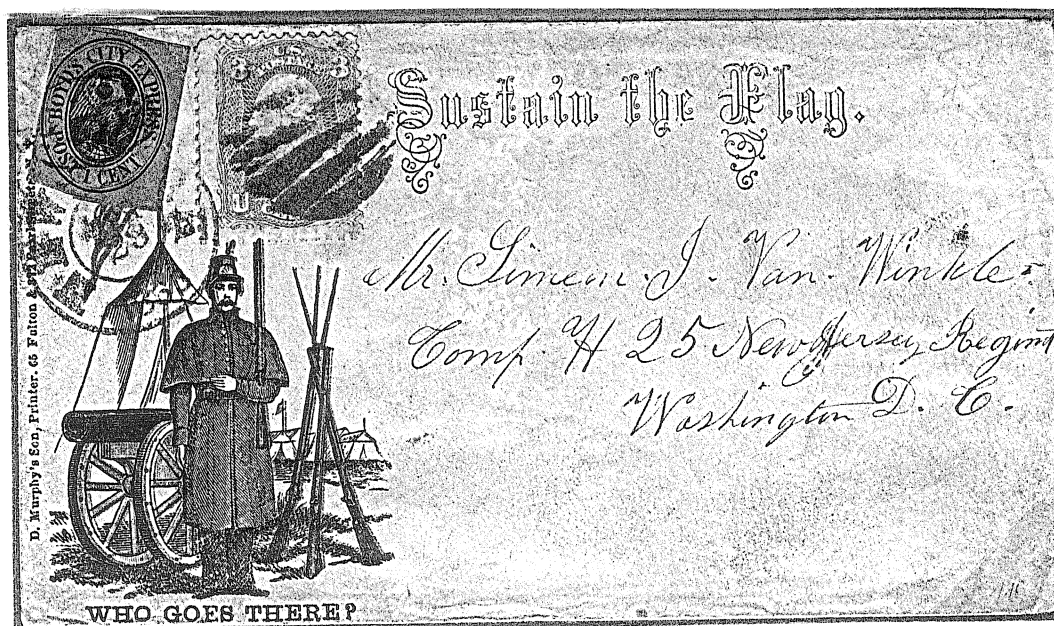 BOYD'S CITY EXPRESS
1 CENT
U.S.
POSTAGE
3 3
Sustain the Flag.
Mr. Simeon J. Van. Winkle
Comp. H 25 New Jersey Regimt
Washington D. C.
D. Murphy's Son, Printer. 65 Fulton &
WHO GOES THERE?